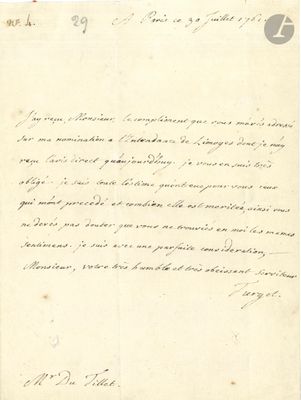 N.F. 4.
29
A Paris ce 30 Juillet 1761.
J'ay reçu, Monsieur, le compliment que vous m'avés adressé
sur ma nomination a l'Intendance de Limoges dont je n'ay
reçu l'avis direct qu'aujourd'huy. je vous en suis très
obligé. je sais toute l'estime qu'ont eu pour vous ceux
qui m'ont precedé et combien elle est meritée, ainsi vous
ne devés pas douter que vous ne trouviés en moi les memes
sentimens. je suis avec une parfaite consideration,
Monsieur, votre très humble et très obeissant serviteur
Turgot.
Mr. Du Tillet.